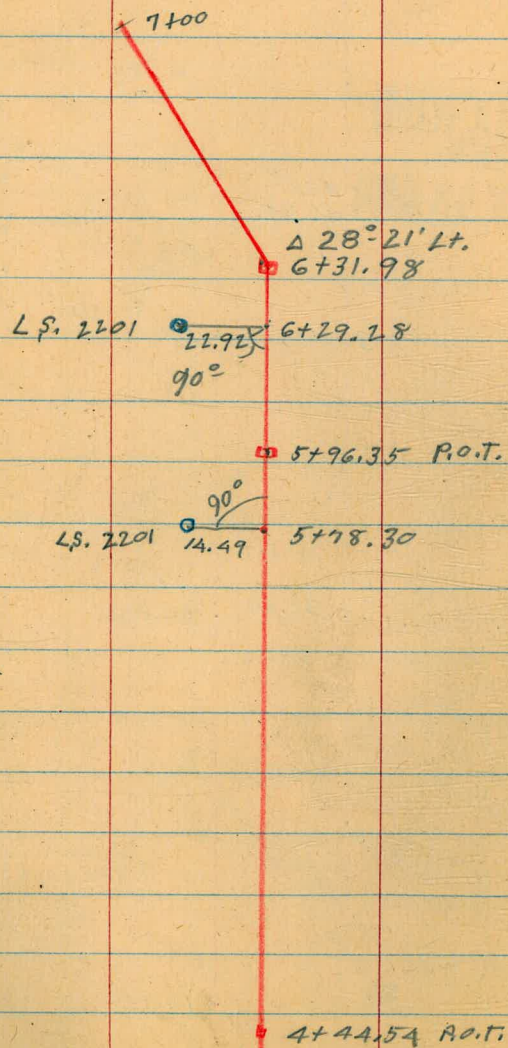 7+00
Δ 28°-21' Lt.
6+31.98
L.S. 2201 22.92 6+29.28
90°
5+96.35 P.O.T.
90°
L.S. 2201 14.49 5+78.30
4+44.54 P.O.T.